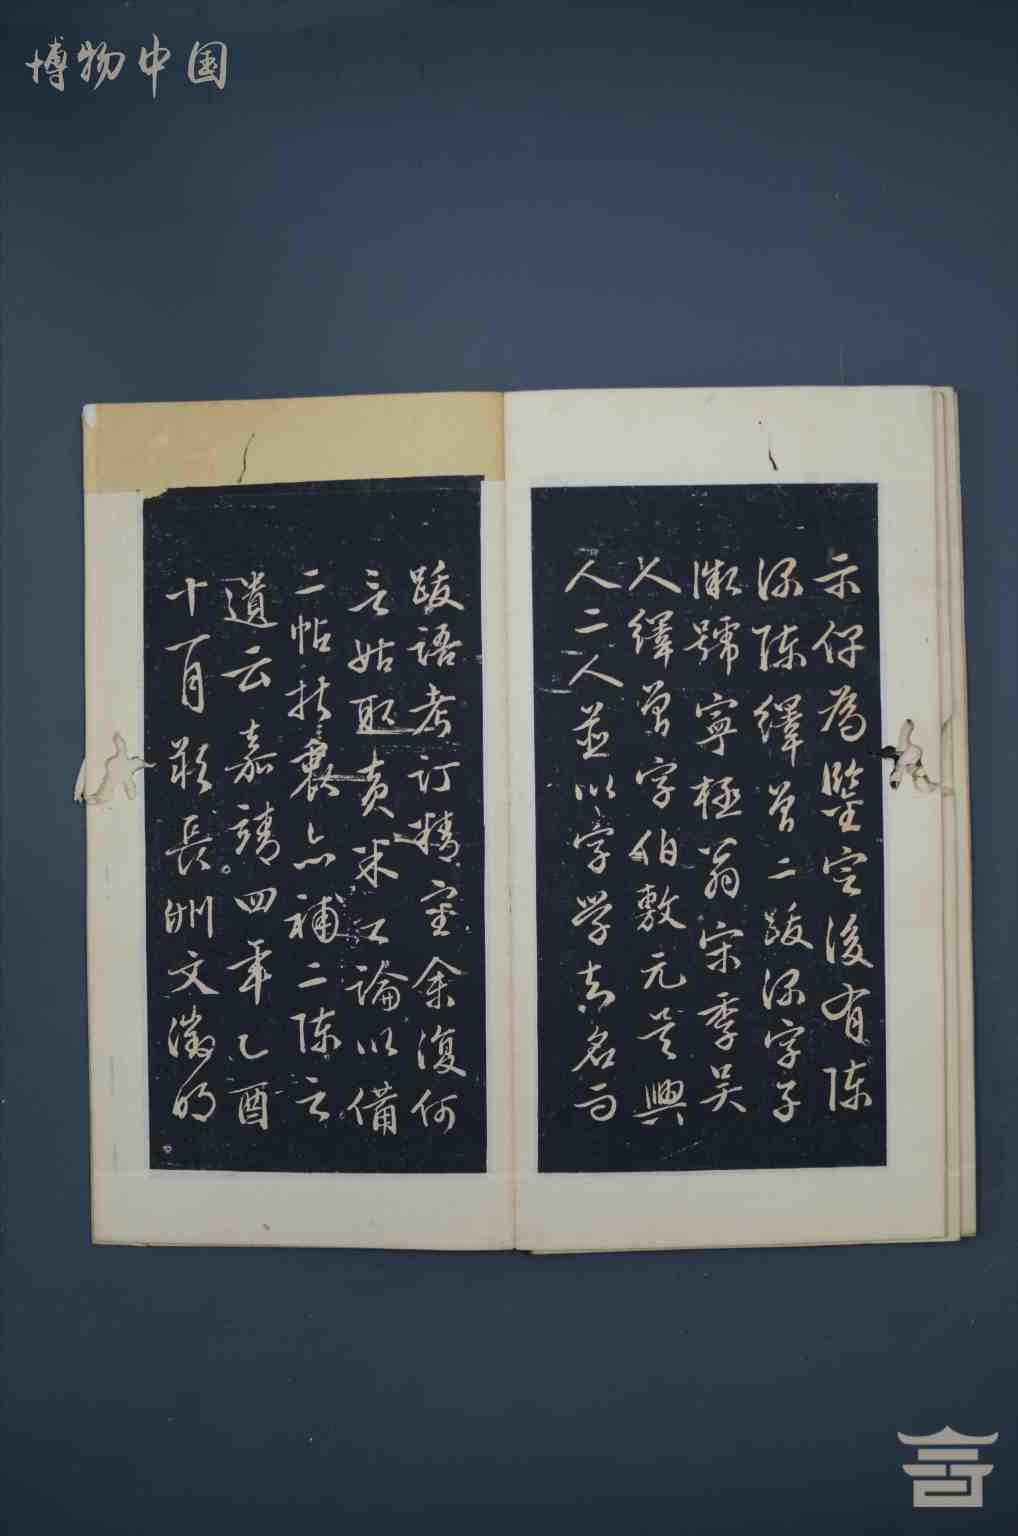 博物中国
示俾為鑒定後有陳
深陳繹曾二跋深字子
微號寧極翁宋季吳
人繹曾字伯敷元吳興
人二人並以字學知名而
跋語考訂精審余復何
言姑取黃米之論以備
二帖折衷亦補二陳之
遺云嘉靖四年乙酉
十一月朔長洲文徵明